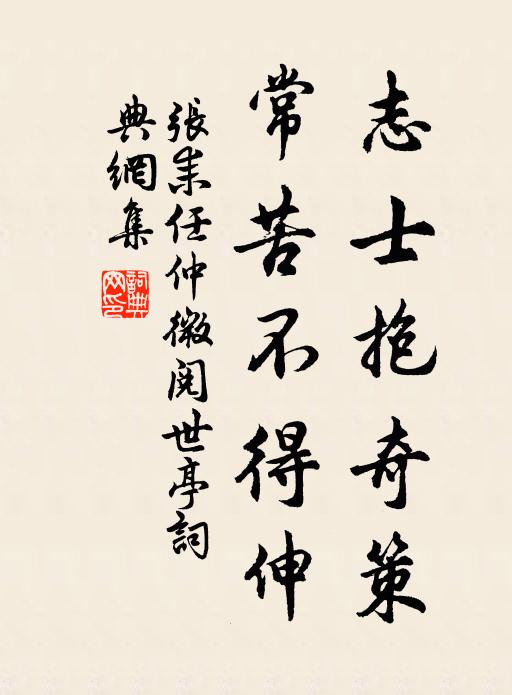 志士抱奇策
常苦不得伸
張耒任仲微閱世亭詞
典網集
詞典網印